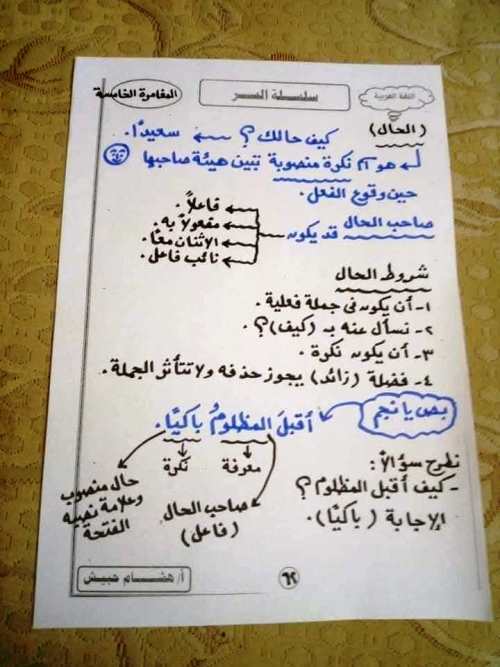 اللغة العربية
سلسلة السر
المغامرة الخامسة
(الحال)
كيف حالك؟ سعيدًا.
هو اسم نكرة منصوبة تبين هيئة صاحبها
حين وقوع الفعل.
صاحب الحال قد يكون
فاعلاً.
مفعولاً به.
الاثنان معًا.
نائب فاعل.
شروط الحال
١- أن يكون فى جملة فعلية.
٢- نسأل عنه بـ (كيف)؟.
٣- أن يكون نكرة.
٤- فضلة (زائد) يجوز حذفه ولا تتأثر الجملة.
بص يا نجم
أقبلَ المظلومُ باكيًا.
معرفة
نكرة
صاحب الحال
(فاعل)
حال منصوب
وعلامة نصبه
الفتحة
نطرح سؤالاً:
- كيف أقبل المظلوم؟
الإجابة (باكيًا).
أ/ هشام حبيش